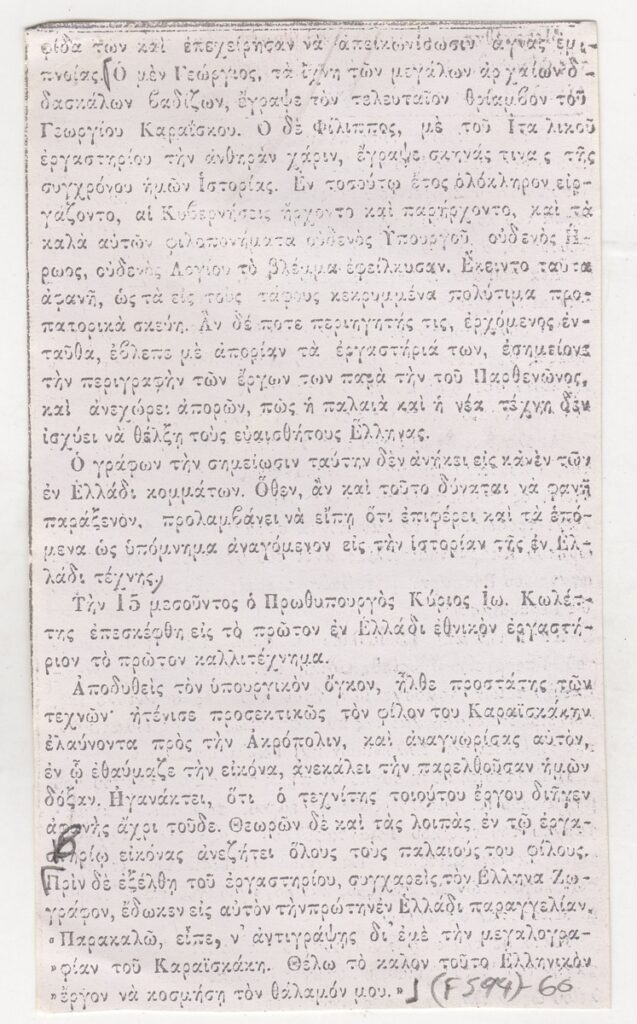 φίδα των καὶ ἐπεχείρησαν νὰ ἀπεικονίσωσιν ἁγνὰς ἐμ-
πνοίας. Ὁ μὲν Γεώργιος, τὰ ἴχνη τῶν μεγάλων ἀρχαίων δι-
δασκάλων βαδίζων, ἔγραψε τὸν τελευταῖον θρίαμβον τοῦ
Γεωργίου Καραΐσκου. Ὁ δὲ Φίλιππος, μὲ τοῦ Ἰταλικοῦ
ἐργαστηρίου τὴν ἀνθηρὰν χάριν, ἔγραψε σκηνάς τινας τῆς
συγχρόνου ἡμῶν Ἱστορίας. Ἐν τοσούτῳ ἔτος ὁλόκληρον εἰρ-
γάζοντο, αἱ Κυβερνήσεις ἤρχοντο καὶ παρήρχοντο, καὶ τὰ
καλὰ αὐτῶν φιλοπονήματα οὐδενὸς Ὑπουργοῦ, οὐδενὸς Ἥ-
ρωος, οὐδενὸς Λογίου τὸ βλέμμα ἐφείλκυσαν. Ἔκειντο ταῦτα
ἀφανῆ, ὡς τὰ εἰς τοὺς τάφους κεκρυμμένα πολύτιμα προ-
πατορικὰ σκεύη. Ἂν δέ ποτε περιηγητής τις, ἐρχόμενος ἐν-
ταῦθα, ἔβλεπε μὲ ἀπορίαν τὰ ἐργαστήριά των, ἐσημείονε
τὴν περιγραφὴν τῶν ἔργων των παρὰ τὴν τοῦ Παρθενῶνος,
καὶ ἀνεχώρει ἀπορῶν, πῶς ἡ παλαιὰ καὶ ἡ νέα τέχνη δὲν
ἰσχύει νὰ θέλξῃ τοὺς εὐαισθήτους Ἕλληνας.
Ὁ γράφων τὴν σημείωσιν ταύτην δὲν ἀνήκει εἰς κανὲν τῶν
ἐν Ἑλλάδι κομμάτων. Ὅθεν, ἂν καὶ τοῦτο δύναται νὰ φανῇ
παράξενον, προλαμβάνει νὰ εἴπῃ ὅτι ἐπιφέρει καὶ τὰ ἑπό-
μενα ὡς ὑπόμνημα ἀναγόμενον εἰς τὴν ἱστορίαν τῆς ἐν Ἑλ-
λάδι τέχνης.
Τὴν 15 μεσοῦντος ὁ Πρωθυπουργὸς Κύριος Ἰω. Κωλέτ-
της ἐπεσκέφθη εἰς τὸ πρῶτον ἐν Ἑλλάδι ἐθνικὸν ἐργαστή-
ριον τὸ πρῶτον καλλιτέχνημα.
Ἀποδυθεὶς τὸν ὑπουργικὸν ὄγκον, ἦλθε προστάτης τῶν
τεχνῶν· ἠτένισε προσεκτικῶς τὸν φίλον του Καραϊσκάκην
ἐλαύνοντα πρὸς τὴν Ἀκρόπολιν, καὶ ἀναγνωρίσας αὐτὸν,
ἐν ᾧ ἐθαύμαζε τὴν εἰκόνα, ἀνεκάλει τὴν παρελθοῦσαν ἡμῶν
δόξαν. Ἠγανάκτει, ὅτι ὁ τεχνίτης τοιούτου ἔργου διῆγεν
ἀφανὴς ἄχρι τοῦδε. Θεωρῶν δὲ καὶ τὰς λοιπὰς ἐν τῷ ἐργα-
στηρίῳ εἰκόνας ἀνεζήτει ὅλους τοὺς παλαιούς του φίλους.
Πρὶν δὲ ἐξέλθῃ τοῦ ἐργαστηρίου, συγχαρεὶς τὸν Ἕλληνα Ζω-
γράφον, ἔδωκεν εἰς αὐτὸν τὴν πρώτην ἐν Ἑλλάδι παραγγελίαν.
«Παρακαλῶ, εἶπε, ν' ἀντιγράψῃς δι' ἐμὲ τὴν μεγαλογρα-
»φίαν τοῦ Καραϊσκάκη. Θέλω τὸ καλὸν τοῦτο Ἑλληνικὸν
»ἔργον νὰ κοσμήσῃ τὸν θάλαμόν μου.» (F 594) 66